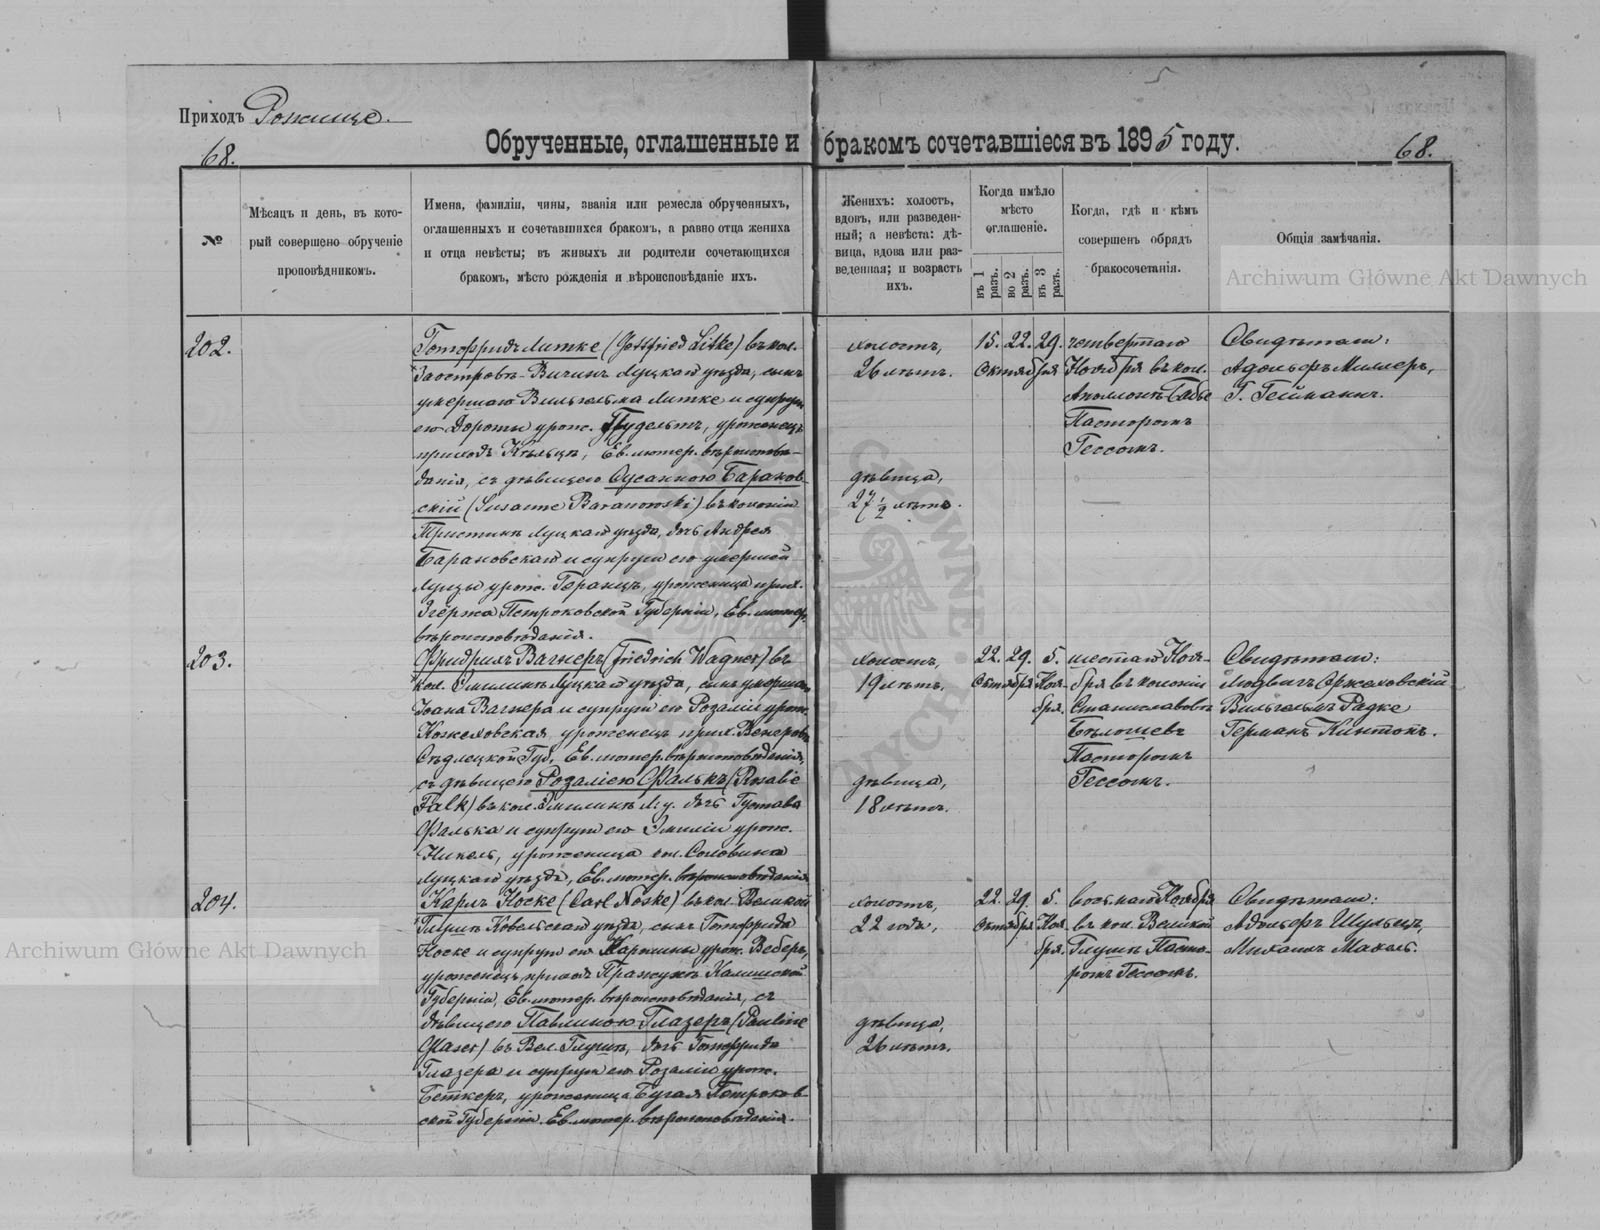 Приходъ Рожище.
68.
Обрученные, оглашенные и бракомъ сочетавшіеся въ 1895 году.
68.
№
Мѣсяцъ и день, въ кото-
рый совершено обрученіе
проповѣдникомъ.
Имена, фамиліи, чины, званія или ремесла обрученныхъ,
оглашенныхъ и сочетавшихся бракомъ, а равно отца жениха
и отца невѣсты; въ живыхъ ли родители сочетающихся
бракомъ, мѣсто рожденія и вѣроисповѣданіе ихъ.
Женихъ: холостъ,
вдовъ, или разведен-
ный; а невѣста: дѣ-
вица, вдова или раз-
веденная; и возрастъ
ихъ.
Когда имѣло
мѣсто
оглашеніе.
въ 1 разъ.
во 2 разъ.
въ 3 разъ.
Когда, гдѣ и кѣмъ
совершенъ обрядъ
бракосочетанія.
Общія замѣчанія.
Archiwum Główne Akt Dawnych
202.
Готфридъ Литке (Gottfried Litke) въ кол.
Заостровъ-Вичинъ Луцкаго уѣзда, сынъ
умершаго Вильгельма Литке и супруги
его Дороты урож. уроженецъ
приходъ Ев. лютер. вѣроисповѣ-
данія, съ дѣвицею Сусанною Баранов-
скій (Susanne Baranowski) въ колоніи
Тристинъ Луцкаго уѣзда, дочь Андрея
Барановскаго и супруги его умершей
Луизы урож. уроженица прих.
Згержа Петроковской Губерніи, Ев. лютер.
вѣроисповѣданія.
холостъ,
26 лѣтъ.
дѣвица,
27 1/2 лѣтъ.
15. 22. 29.
Октября
четвертаго
Ноября въ кол.
Аполлонъ
Пасторомъ
Гессомъ.
Свидѣтели:
Адольфъ Миллеръ,
Г. Гейманъ.
203.
Фридрихъ Вагнеръ (Friedrich Wagner) въ
кол. Эмилинъ Луцкаго уѣзда, сынъ умершаго
Іоана Вагнера и супруги его Розаліи урож.
уроженецъ прих. Венгровъ
Сѣдлецкой Губ, Ев. лютер. вѣроисповѣданія,
съ дѣвицею Розаліею Фалькъ (Rosalie
Falk) въ кол. Эмилинъ Л. у. дочь Густава
Фалька и супруги его Эмиліи урож.
Никель, уроженица
Луцкаго уѣзда, Ев. лютер. вѣроисповѣданія.
холостъ,
19 лѣтъ.
дѣвица,
18 лѣтъ.
22. 29. 5.
Октября Ноя-
бря.
шестаго Ноя-
бря въ колоніи
Станиславовъ
Пасторомъ
Гессомъ.
Свидѣтели:
Людвигъ
Вильгельмъ Радке
Германъ
204.
Карлъ Носке (Carl Noske) въ кол. Великой
Глуши Ковельскаго уѣзда, сынъ Готфрида
Носке и супруги его урож. Веберъ,
уроженецъ приходъ Калишской
Губерніи, Ев. лютер. вѣроисповѣданія, съ
дѣвицею Павлиною Глазеръ (Pauline
Glaser) въ Вел. Глуши, дочь Готфрида
Глазера и супруги его Розаліи урож.
Беткеръ, уроженица Петроков-
ской Губерніи Ев. лютер. вѣроисповѣданія.
холостъ,
22 года,
дѣвица,
26 лѣтъ.
22. 29. 5.
Октября Ноя-
бря.
восьмаго Ноября
въ кол. Великой
Глуши Пасто-
ромъ Гессомъ.
Свидѣтели:
Адольфъ Шульцъ,
Михаилъ
Archiwum Główne Akt Dawnych